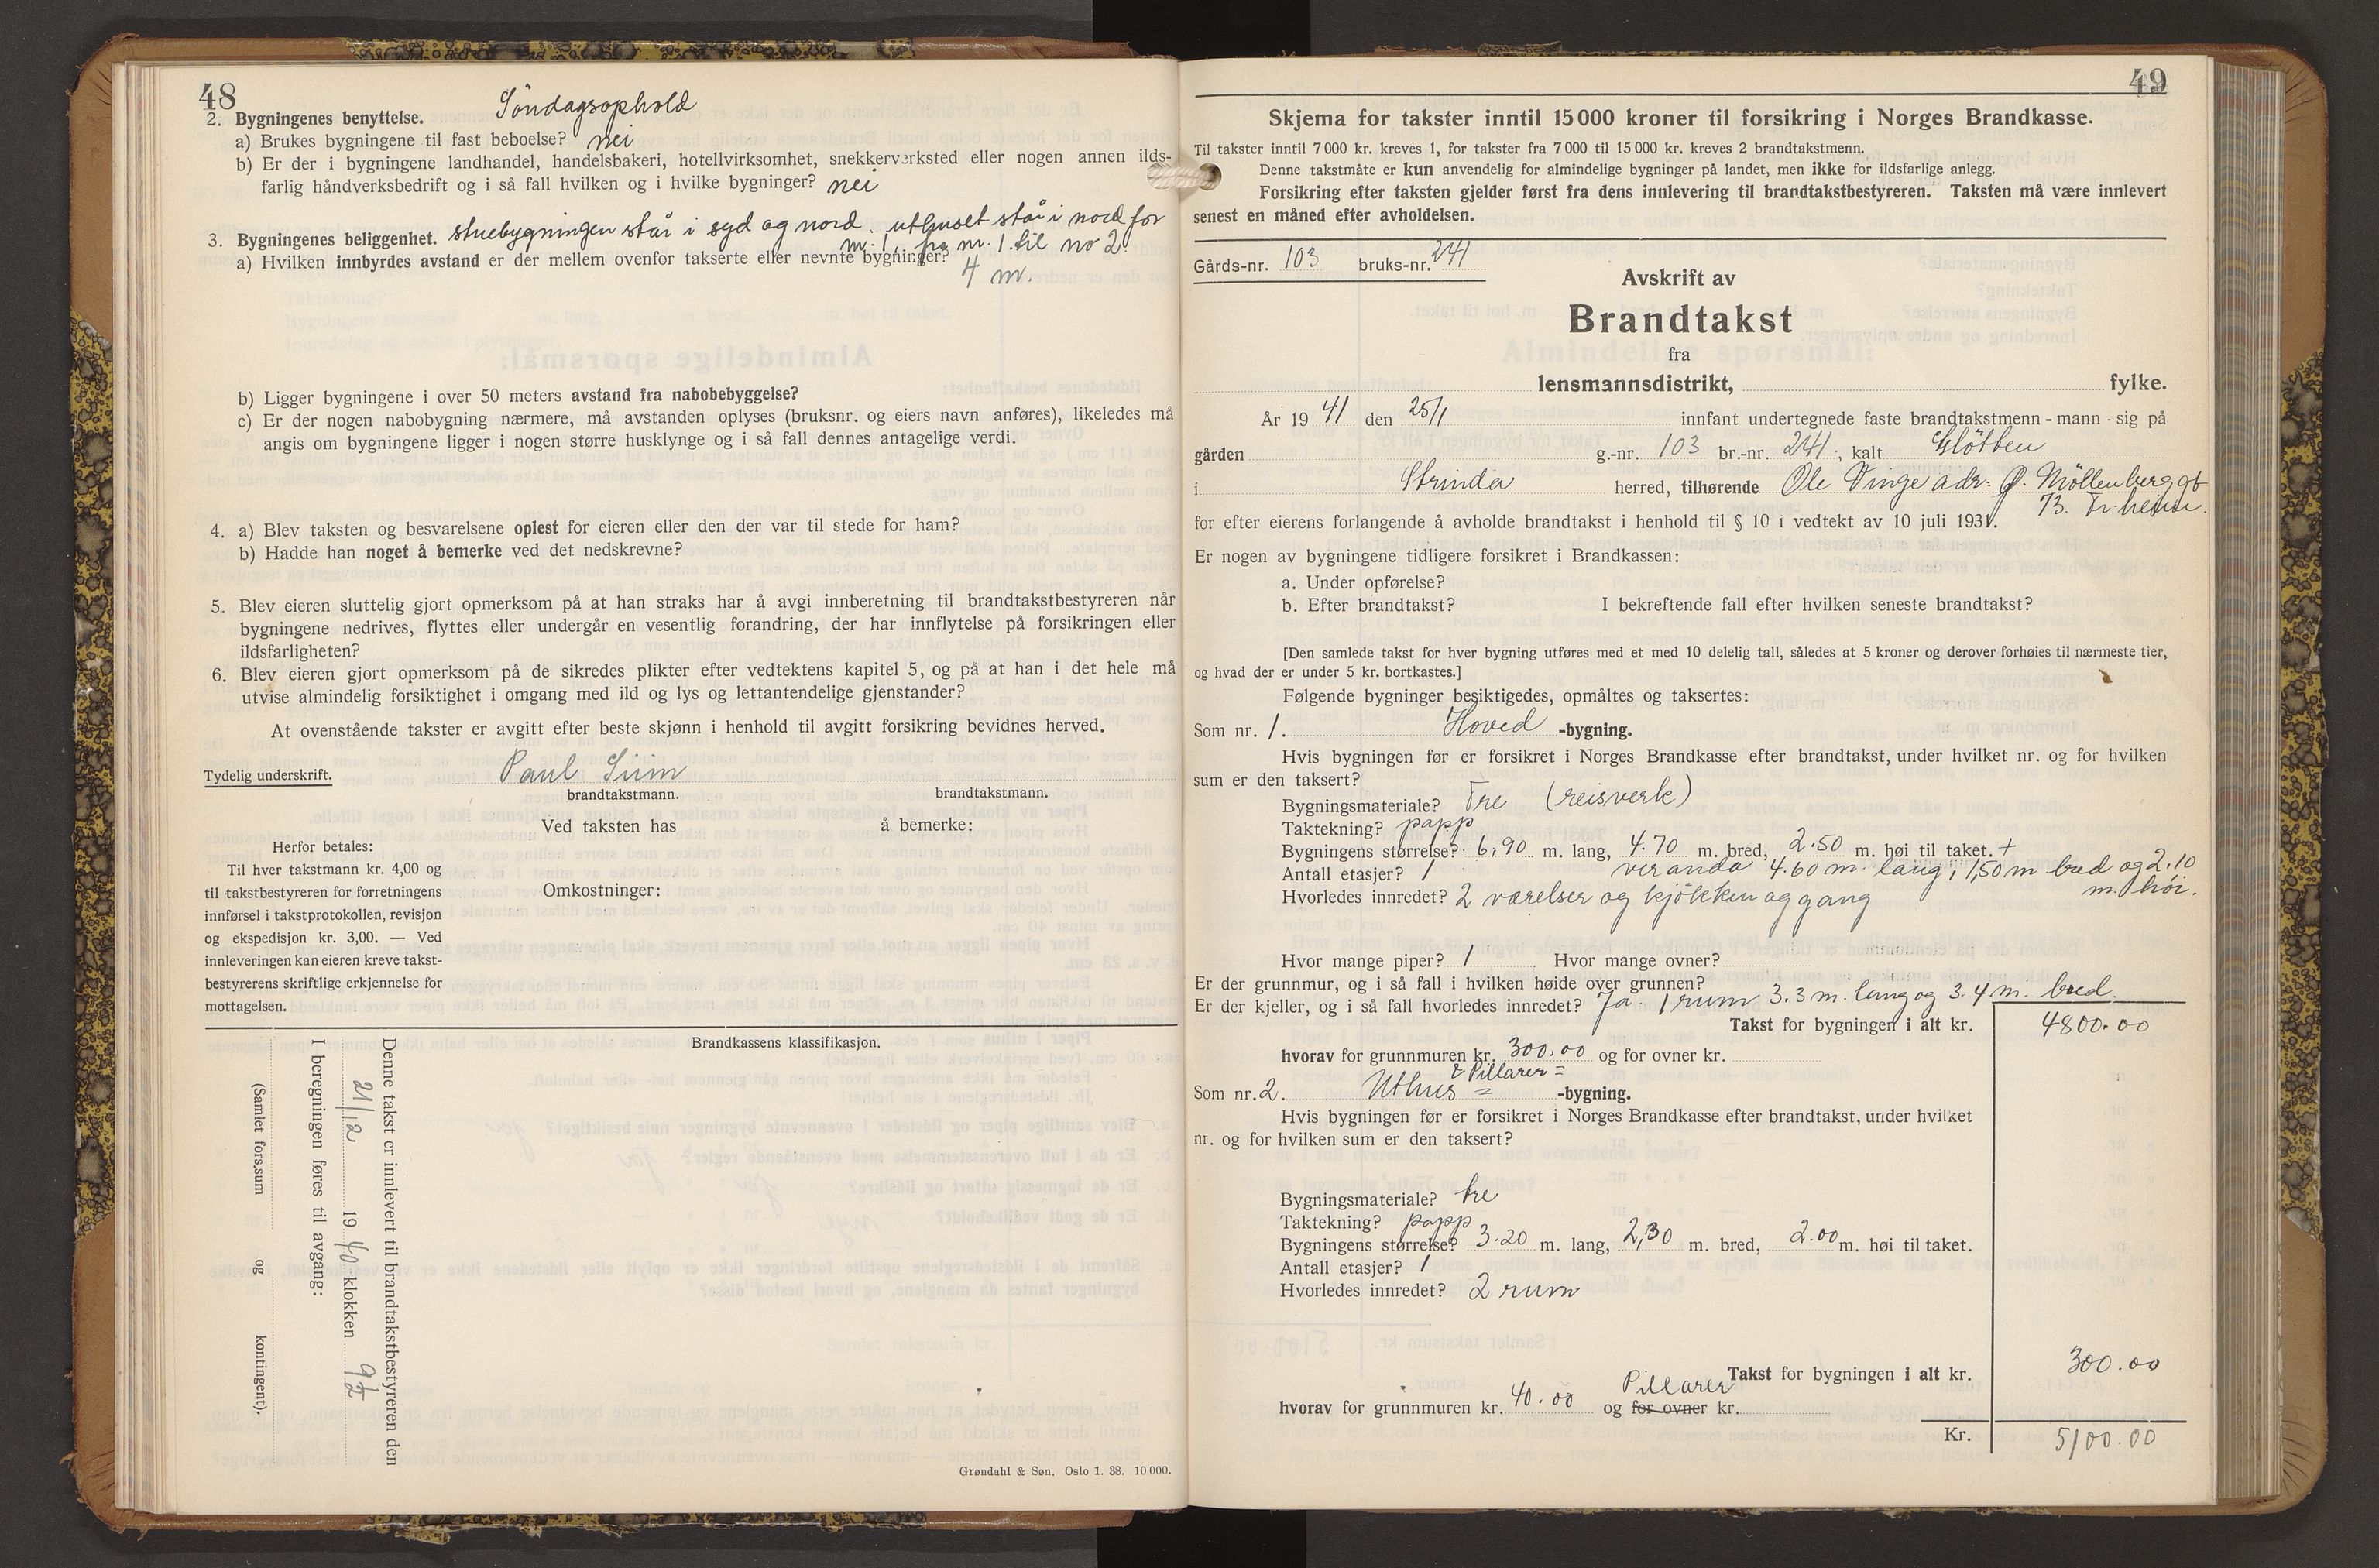 48
2. Bygningenes benyttelse. Söndagsophold
a) Brukes bygningene til fast beboelse? nei
b) Er der i bygningene landhandel, handelsbakeri, hotellvirksomhet, snekkerverksted eller nogen annen ilds-
farlig håndverksbedrift og i så fall hvilken og i hvilke bygninger? nei
3. Bygningenes beliggenhet. stuebygningen står i syd og nord. uthuset står i nord for
nr. 1. fra nr. 1. til no 2.
a) Hvilken innbyrdes avstand er der mellem ovenfor takserte eller nevnte bygninger?
4 m.
b) Ligger bygningene i over 50 meters avstand fra nabobebyggelse?
c) Er der nogen nabobygning nærmere, må avstanden oplyses (bruksnr. og eiers navn anføres), likeledes må
angis om bygningene ligger i nogen større husklynge og i så fall dennes antagelige verdi.
4. a) Blev taksten og besvarelsene oplest for eieren eller den der var til stede for ham?
b) Hadde han noget å bemerke ved det nedskrevne?
5. Blev eieren sluttelig gjort opmerksom på at han straks har å avgi innberetning til brandtakstbestyreren når
bygningene nedrives, flyttes eller undergår en vesentlig forandring, der har innflytelse på forsikringen eller
ildsfarligheten?
6. Blev eieren gjort opmerksom på de sikredes plikter efter vedtektens kapitel 5, og på at han i det hele må
utvise almindelig forsiktighet i omgang med ild og lys og lettantendelige gjenstander?
At ovenstående takster er avgitt efter beste skjønn i henhold til avgitt forsikring bevidnes herved.
Tydelig underskrift. Paul Siim
brandtakstmann. brandtakstmann.
Ved taksten has å bemerke:
Herfor betales:
Til hver takstmann kr. 4,00 og
til takstbestyreren for forretningens
innførsel i takstprotokollen, revisjon
og ekspedisjon kr. 3,00. — Ved
innleveringen kan eieren kreve takst-
bestyrerens skriftlige erkjennelse for
mottagelsen.
Omkostninger:
Brandkassens klassifikasjon.
Denne takst er innlevert til brandtakstbestyreren den
21/12 19 40 klokken 9½
I beregningen føres til avgang:
(Samlet fors.sum og kontingent).
Grøndahl & Søn. Oslo 1. 38. 10 000.
49
Skjema for takster inntil 15 000 kroner til forsikring i Norges Brandkasse.
Til takster inntil 7 000 kr. kreves 1, for takster fra 7 000 til 15 000 kr. kreves 2 brandtakstmenn.
Denne takstmåte er kun anvendelig for almindelige bygninger på landet, men ikke for ildsfarlige anlegg.
Forsikring efter taksten gjelder først fra dens innlevering til brandtakstbestyreren. Taksten må være innlevert
senest en måned efter avholdelsen.
Gårds-nr. 103 bruks-nr. 241
Avskrift av
Brandtakst
fra
lensmannsdistrikt, fylke.
År 19 41 den 25/1 innfant undertegnede faste brandtakstmenn - mann - sig på
gården g.-nr. 103 br.-nr. 241, kalt
i Strinda herred, tilhørende Ole Vinge adr: Ø. Möllenberg gt
73. Tr.heim.
for efter eierens forlangende å avholde brandtakst i henhold til § 10 i vedtekt av 10 juli 1931.
Er nogen av bygningene tidligere forsikret i Brandkassen:
a. Under opførelse?
b. Efter brandtakst? I bekreftende fall efter hvilken seneste brandtakst?
[Den samlede takst for hver bygning utføres med et med 10 delelig tall, således at 5 kroner og derover forhøies til nærmeste tier,
og hvad der er under 5 kr. bortkastes.]
Følgende bygninger besiktigedes, opmåltes og taksertes:
Som nr. 1. Hoved -bygning.
Hvis bygningen før er forsikret i Norges Brandkasse efter brandtakst, under hvilket nr. og for hvilken
sum er den taksert?
Bygningsmateriale? Tre (reisverk)
Taktekning? papp
Bygningens størrelse? 6.90 m. lang, 4.70 m. bred, 2.50 m. høi til taket. +
Antall etasjer? 1 veranda 4.60 m. lang, 1,50 m bred og 2.10
m. høi.
Hvorledes innredet? 2 værelser og kjökken og gang
Hvor mange piper? 1 Hvor mange ovner?
Er der grunnmur, og i så fall i hvilken høide over grunnen?
Er der kjeller, og i så fall hvorledes innredet? Ja. 1 rum 3.3 m. lang og 3.4 m. bred.
Takst for bygningen i alt kr. 4800.00
hvorav for grunnmuren kr. 300.00 og for ovner kr.
& Pillarer =
Som nr. 2. Uthus = -bygning.
Hvis bygningen før er forsikret i Norges Brandkasse efter brandtakst, under hvilket
nr. og for hvilken sum er den taksert?
Bygningsmateriale? tre
Taktekning? papp
Bygningens størrelse? 3.20 m. lang, 2,30 m. bred, 2.00 m. høi til taket.
Antall etasjer? 1
Hvorledes innredet? 2 rum
Takst for bygningen i alt kr. 300.00
Pillarer
hvorav for grunnmuren kr. 40.00 og for ovner kr.
Kr. 5100.00